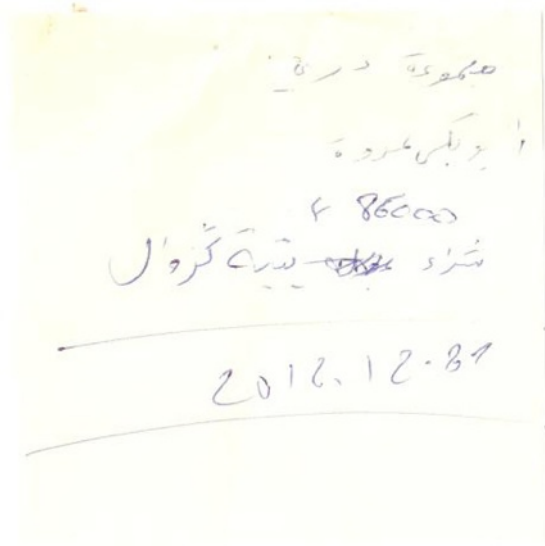 مجموعة درني
أبو بكر عروة
86000 F
شراء بقية گزوال
2012.12.31